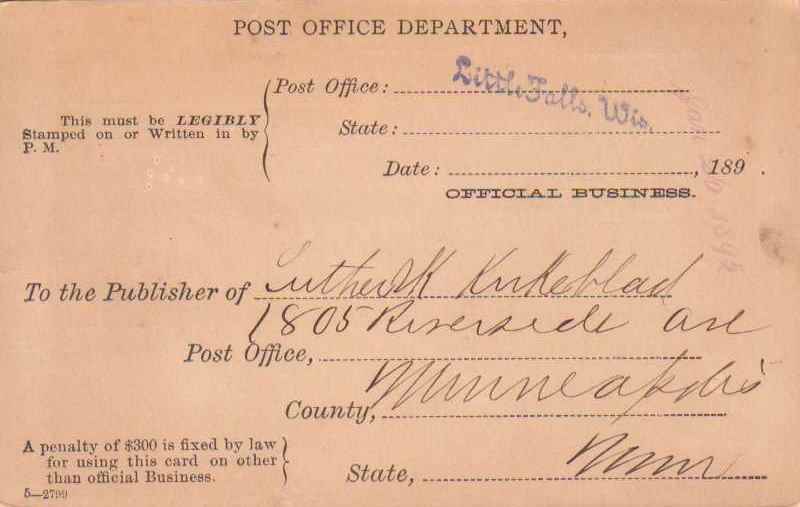 POST OFFICE DEPARTMENT,
Post Office:
Little Falls, Wis.
This must be LEGIBLY
Stamped on or Written in by
P. M.
State:
Date: , 189 .
OFFICIAL BUSINESS.
To the Publisher of Luthersk Kirkeblad
1805 Riverside Ave
Post Office,
Minneapolis
County,
A penalty of $300 is fixed by law
for using this card on other
than official Business.
5—2799
State, Minn